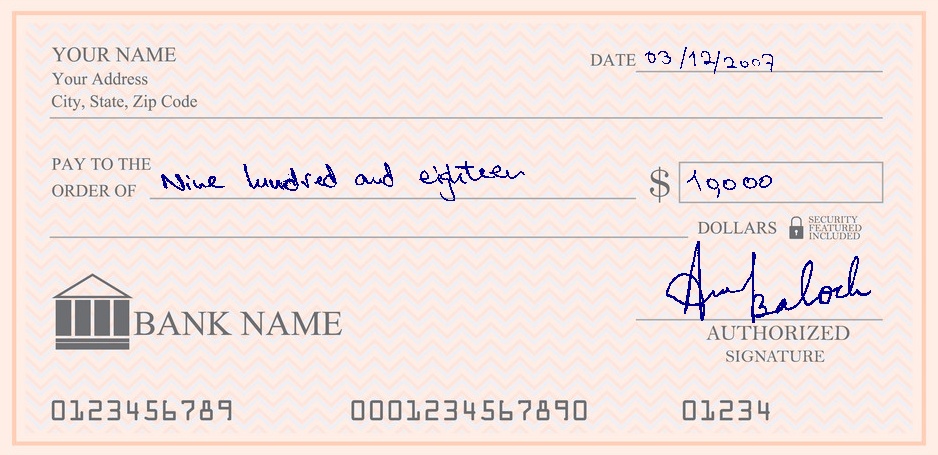 YOUR NAME
Your Address
City, State, Zip Code
DATE 03/12/2007
PAY TO THE
ORDER OF Nine hundred and eighteen $ 19000
DOLLARS SECURITY FEATURED INCLUDED
Baloch
BANK NAME
AUTHORIZED
SIGNATURE
0123456789 0001234567890 01234